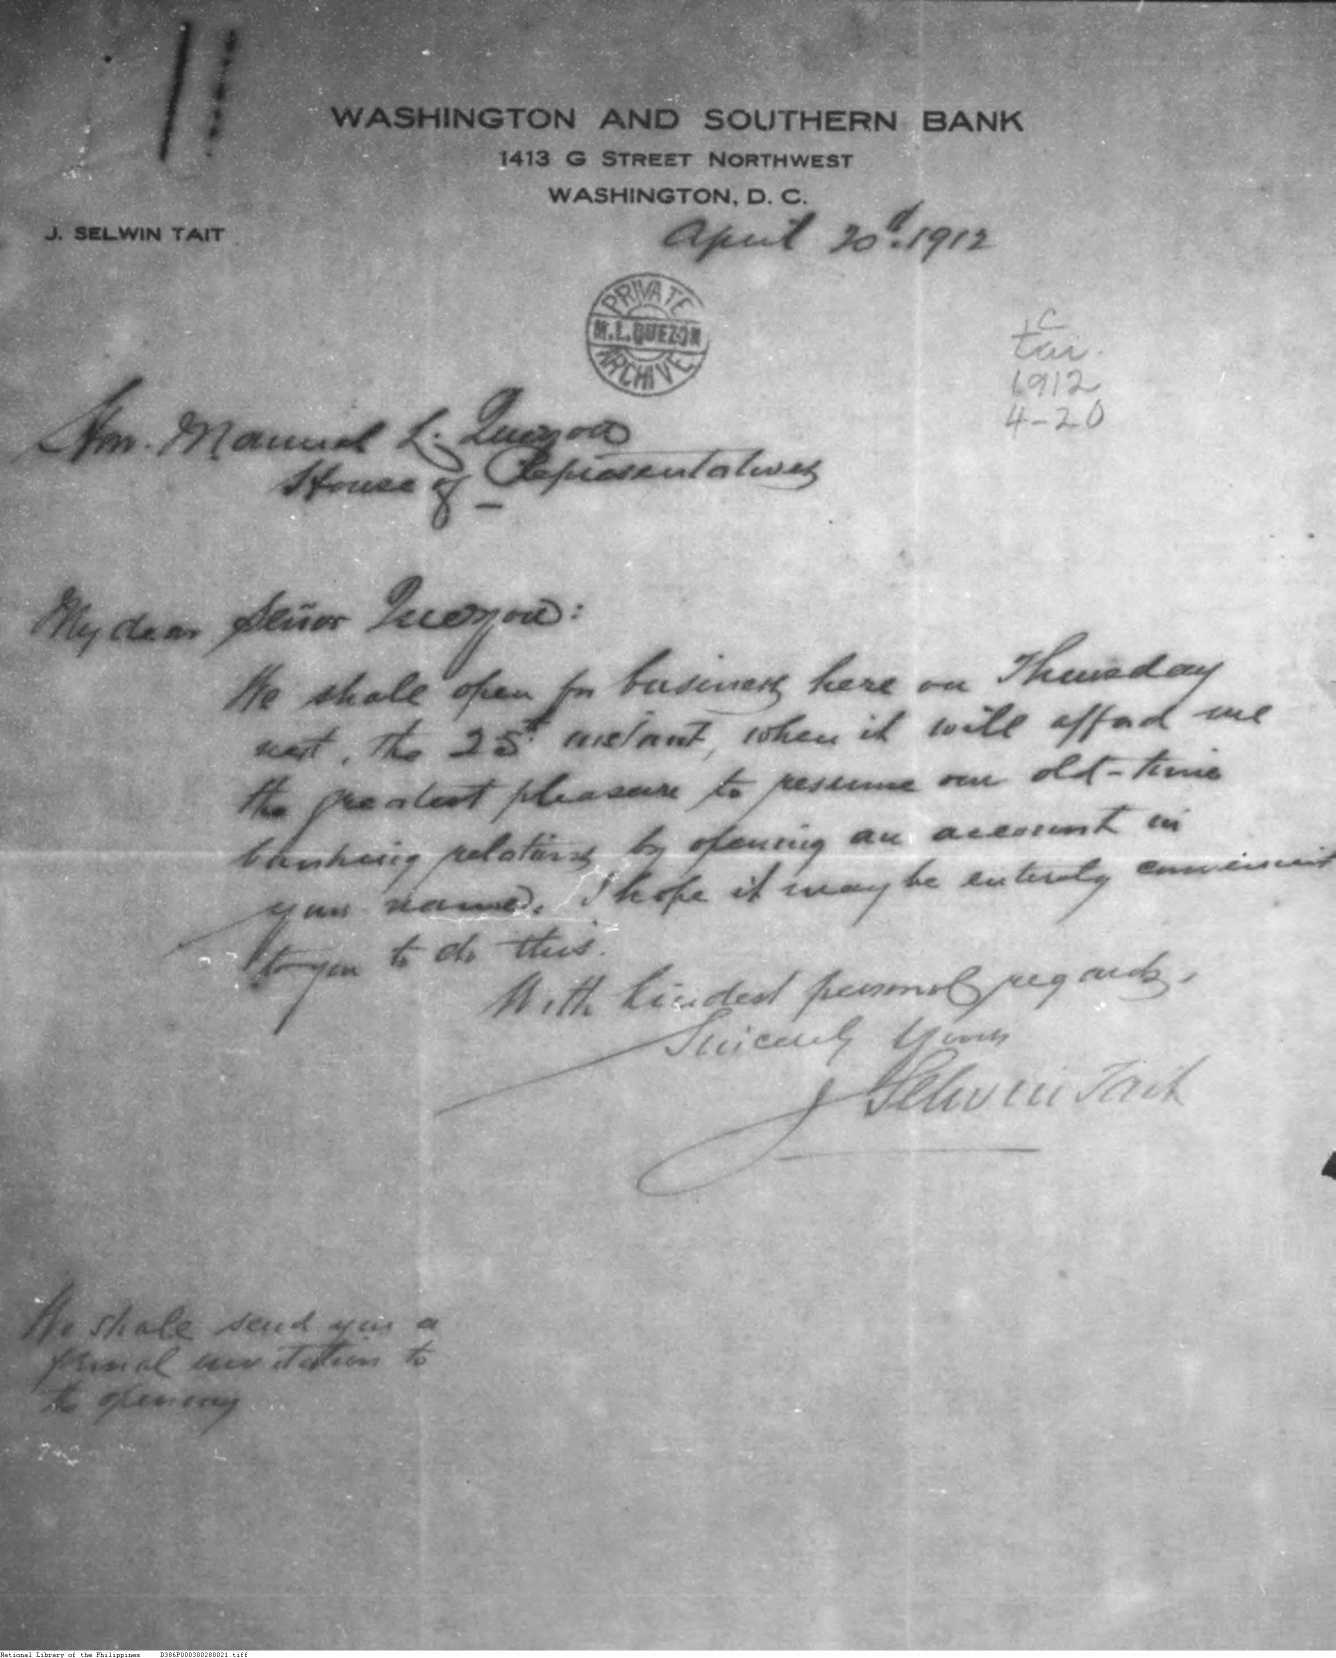 WASHINGTON AND SOUTHERN BANK
1413 G STREET NORTHWEST
WASHINGTON, D. C.
J. SELWIN TAIT
April 20d. 1912
PRIVATE
M.L. QUEZON
ARCHIVE
Tai.
1912
4-20
Hon. Manuel L. Quezon
House of Representatives
My dear Señor Quezon:
We shall open for business here on Thursday
next, the 25th instant, when it will afford me
the greatest pleasure to resume our old-time
banking relations by opening an account in
your name. I hope it may be entirely convenient
to you to do this.
With kindest personal regards,
Sincerely Yours
J Selwin Tait
We shall send you a
formal invitation to
the opening
National Library of the Philippines D386P000300280021.tiff